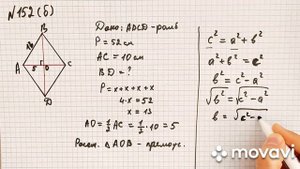 N152(б)
B
A
C
D
5
O
Дано: ABCD-ромб
P = 52 см
AC = 10 см
BD = ?
P = x + x + x + x
4·x = 52
x = 13
AO = 1/2 AC = 1/2 · 10 = 5
△AOB - прямоуг.
c² = a² + b²
a² + b² = c²
b² = c² - a²
√b² = √c² - a²
b = √c² - a
movavi